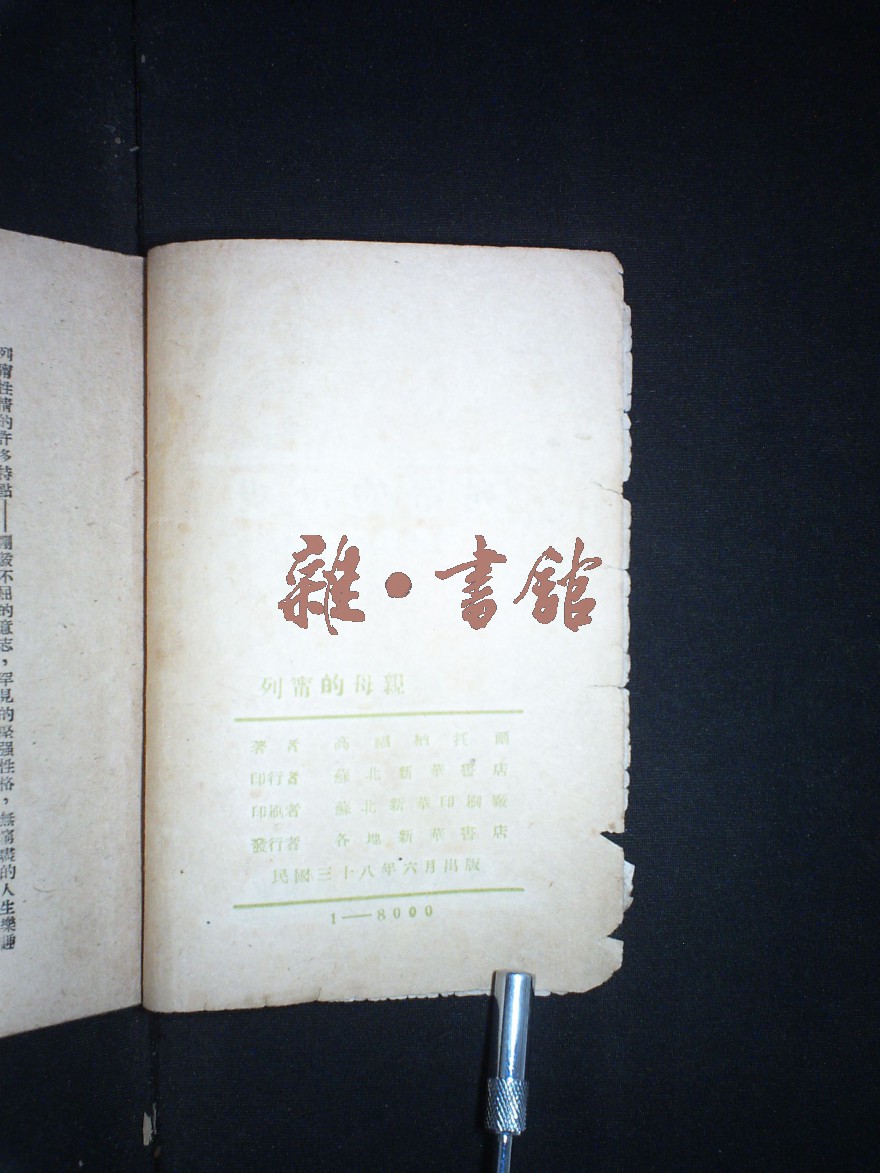 雜·書館
列甯的母親
著者 高爾柏托爾
印行者 蘇北新華書店
印刷者 蘇北新華印刷廠
發行者 各地新華書店
民國三十八年六月出版
1—8000
列甯性情的許多特點——剛毅不屈的意志，罕見的堅强性格，無窮盡的人生樂趣